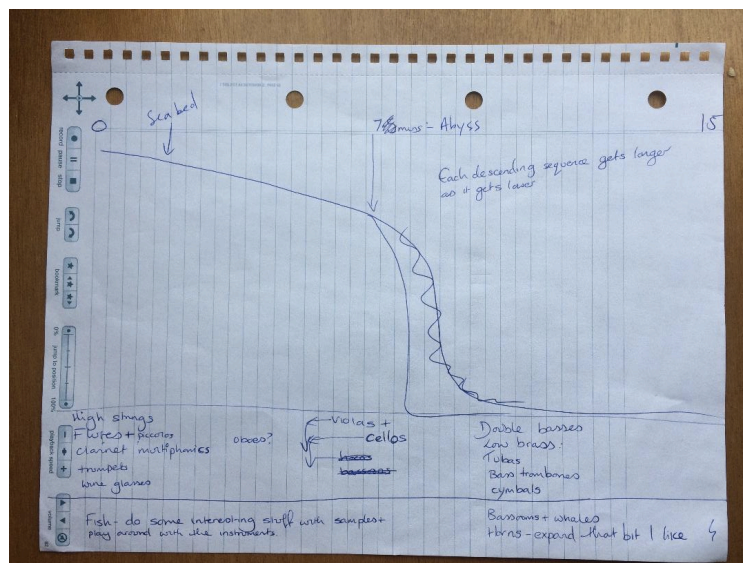 0
Seabed
mins - Abyss
15
Each descending sequence gets longer
as it gets lower
High strings
Flutes + piccolos
clarinet multiphonics
trumpets
wine glasses
oboes?
Violas +
Cellos
horns
bassoons
Double basses
Low brass:
Tubas
Bass trombones
cymbals
Fish - do some interesting stuff with samples +
play around with the instruments.
Bassoons + whales
Horns - expand that bit I like
record pause stop
jump
bookmark
0% jump to position 100%
playback speed
volume